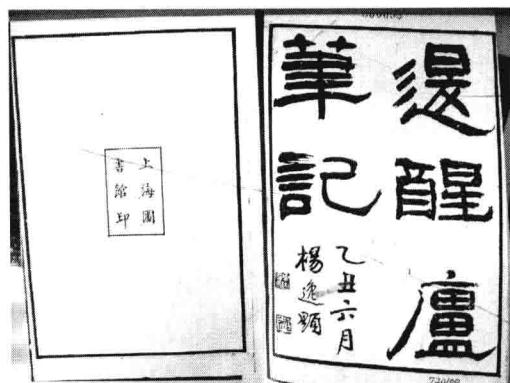 退醒廬
筆記
乙丑六月
楊逸題
上海圖
書館印